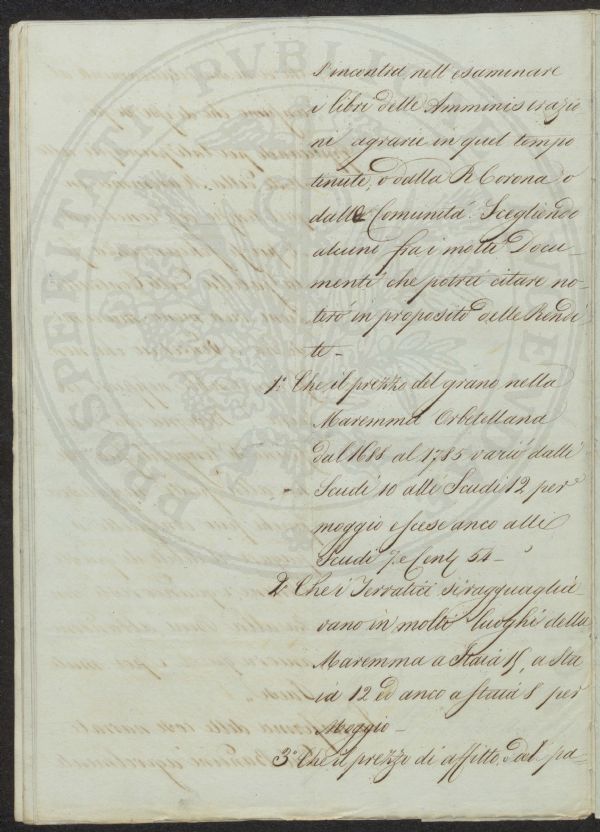 s'incontra nell'esaminare
i libri delle Amminis trazio
ni agrarie in quel tempo
tenute, o dalla R Corona o
dalle Comunità. Scegliendo
alcuni fra i molti Docu-
menti che potrei citare no-
terò in proposito delle Rendi
te-
1.° Che il prezzo del grano nella
Maremma Orbetellana
dal 1688 al 1785 variò dalli
Scudi 10 alli Scudi 12 per
moggio e scese anco alli
Scudi 7. e Cent 54-
2.° Che i Terratici si ragguaglia
vano in molti luoghi della
Maremma a Staia 15, a Sta
ia 12 ed anco a staia 8 per
Moggio-
3.° Che il prezzo di affitto dal pa-
PROSPERITATI PVBLICAE AVGENDAE